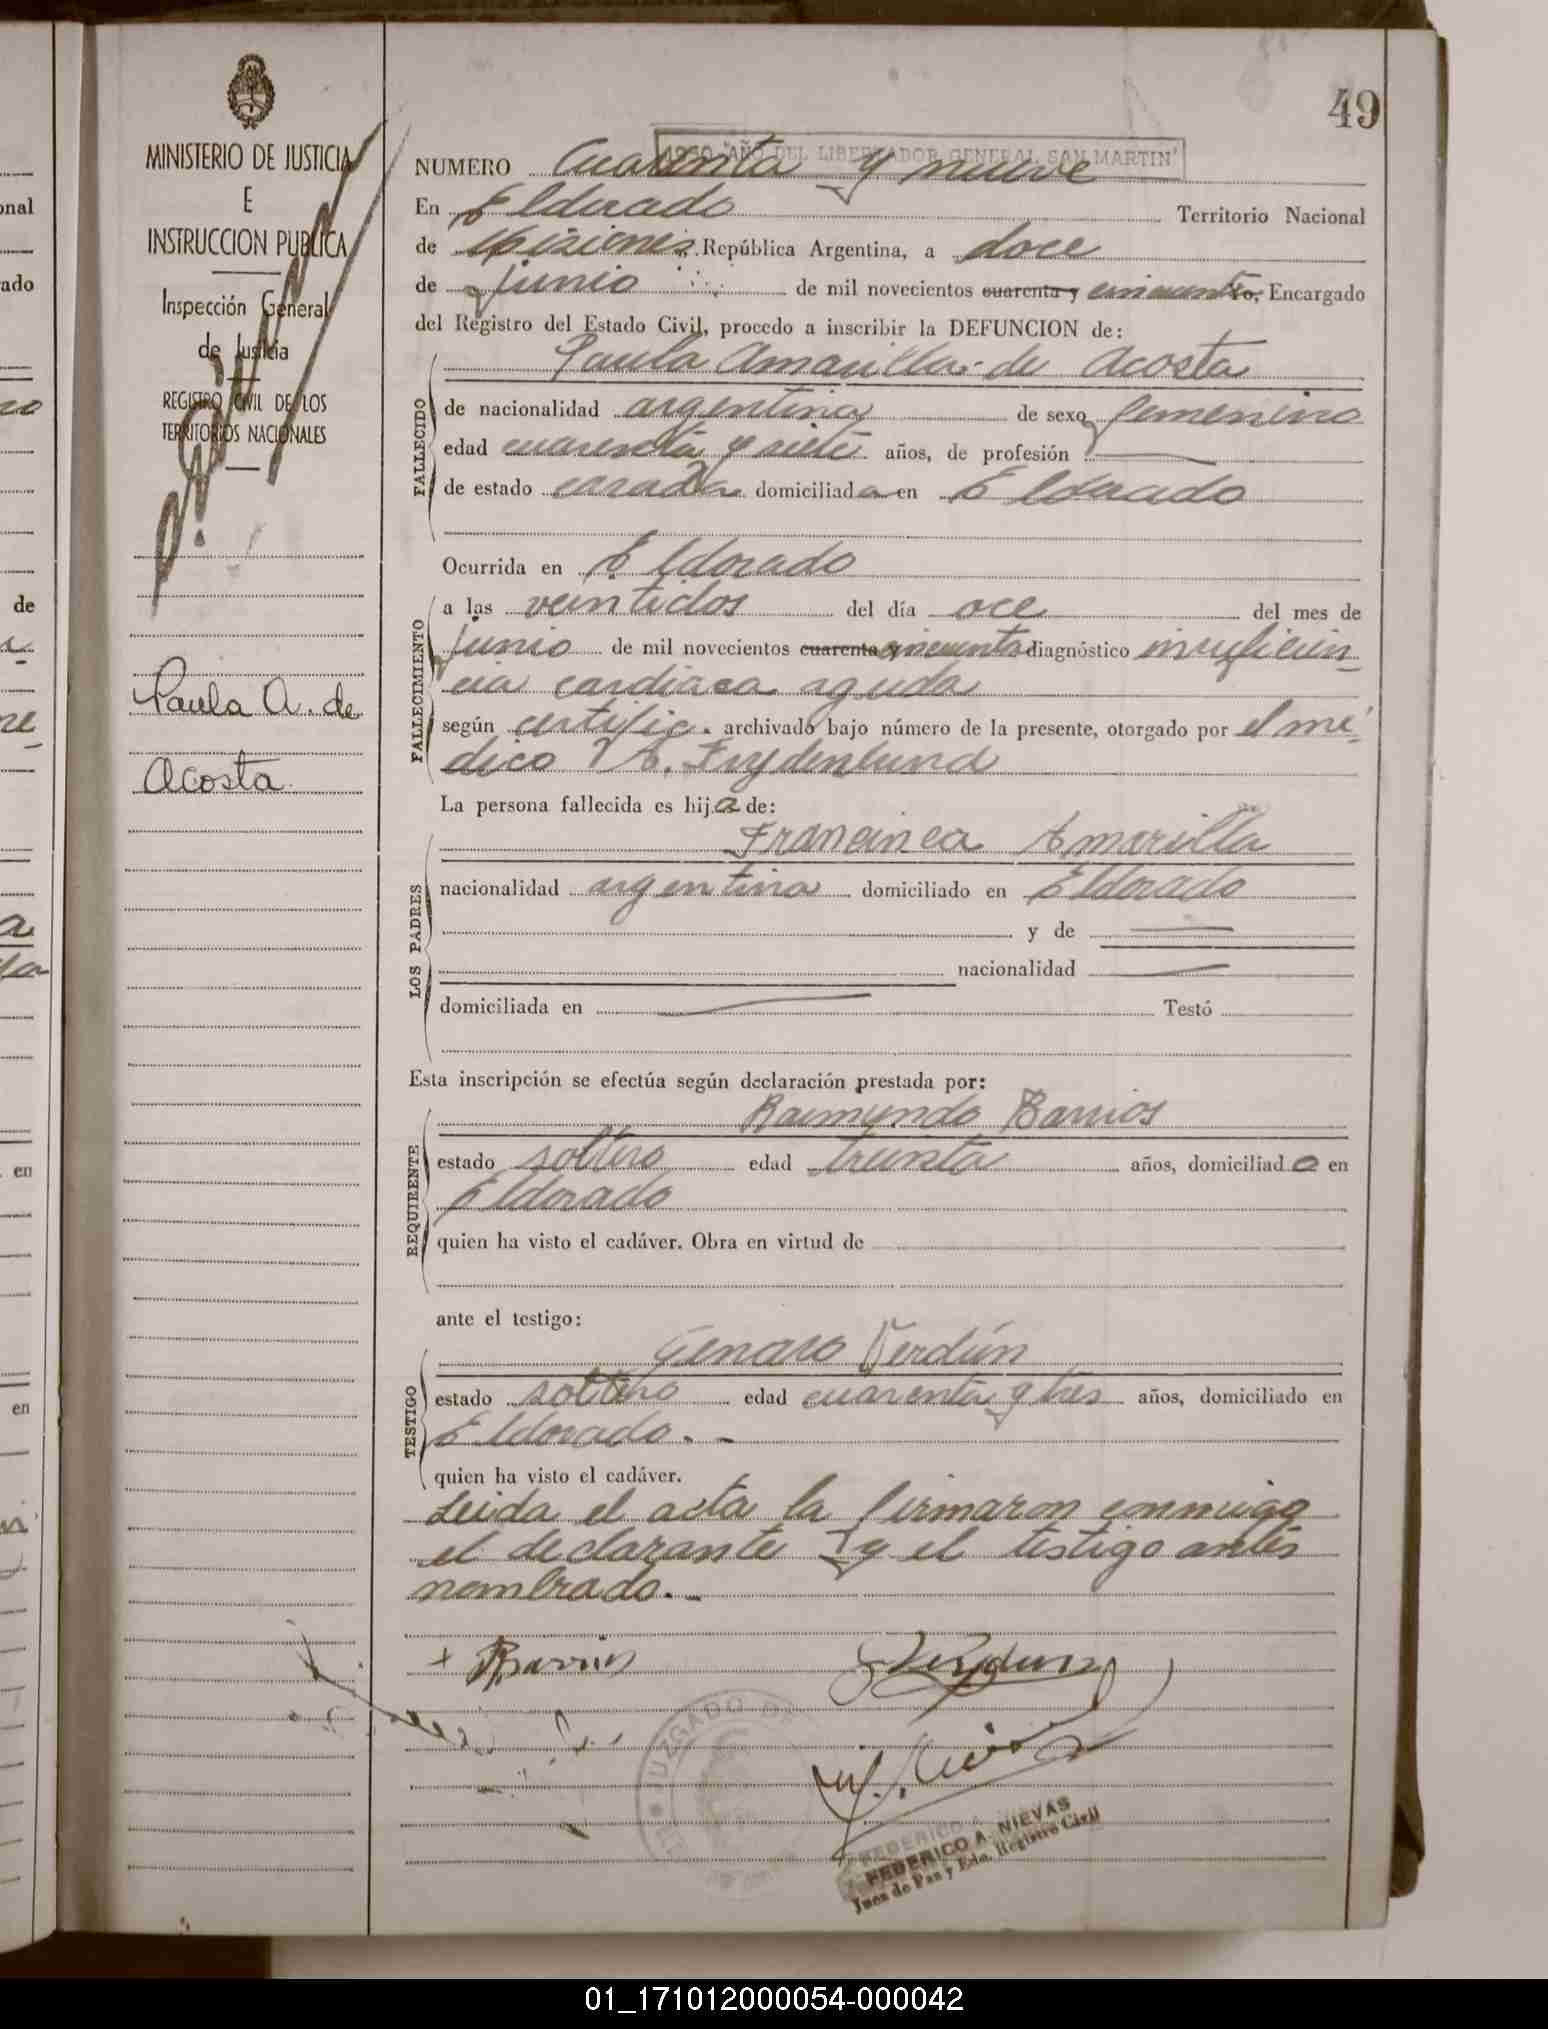 49
MINISTERIO DE JUSTICIA
E
INSTRUCCION PUBLICA
Inspección General
de Justicia
REGISTRO CIVIL DE LOS
TERRITORIOS NACIONALES
Paula A. de
Acosta
1950 "AÑO DEL LIBERTADOR GENERAL SAN MARTIN"
NUMERO Cuarenta y nueve
En Eldorado Territorio Nacional
de Misiones República Argentina, a doce
de junio de mil novecientos cuarenta y cincuenta, Encargado
del Registro del Estado Civil, procedo a inscribir la DEFUNCION de:
Paula Amarilla de Acosta
FALLECIDO
de nacionalidad argentina de sexo femenino
edad cuarenta y siete años, de profesión
de estado casada domiciliada en Eldorado
Ocurrida en Eldorado
FALLECIMIENTO
a las veintidos del día oce del mes de
junio de mil novecientos cuarenta y cincuenta diagnóstico insuficien-
cia cardiaca aguda
según certific. archivado bajo número de la presente, otorgado por el mé-
dico A. Frydenlund
La persona fallecida es hija de:
LOS PADRES
Francinca Amarilla
nacionalidad argentina domiciliado en Eldorado
y de
nacionalidad
domiciliada en Testó
Esta inscripción se efectúa según declaración prestada por:
REQUIRENTE
Raimundo Barrios
estado soltero edad treinta años, domiciliado en
Eldorado
quien ha visto el cadáver. Obra en virtud de
ante el testigo:
TESTIGO
Genaro Verdún
estado soltero edad cuarenta y tres años, domiciliado en
Eldorado. -
quien ha visto el cadáver.
Leida el acta la firmaron conmigo
el declarante y el testigo antes
nombrado. -
+ RBarrios
GVerdun
JUZGADO DE
FEDERICO A. NIEVAS
Juez de Paz y Edo. Registro Civil
onal
ado
de
en
en
01_171012000054-000042